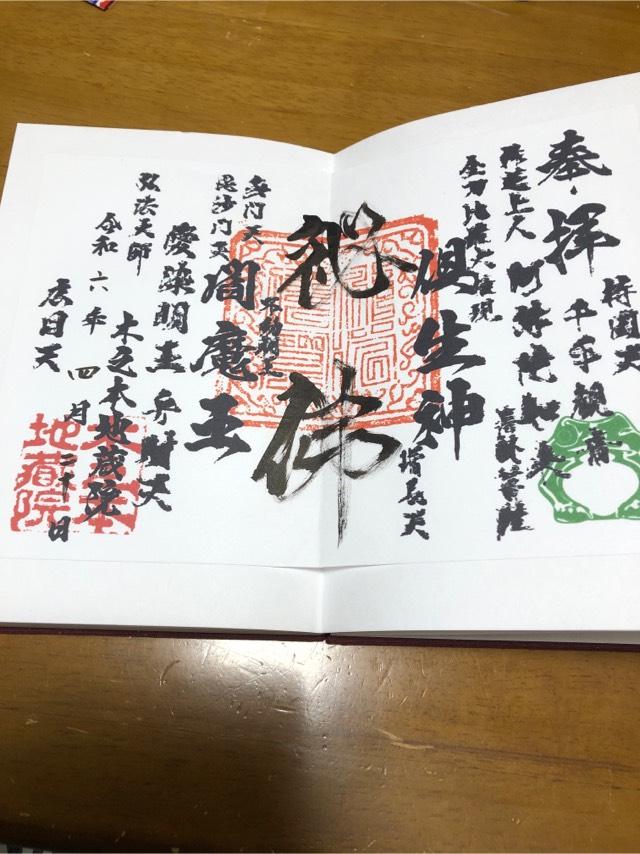 奉拝
持国天
千手観音
阿弥陀如来
金刀比羅大権現
倶生神
増長天
秘佛
不動明王
閻魔王
多聞天
毘沙門天
愛染明王 弁財天
弘法大師
木之本地蔵院
令和六年四月二十日
広目天
木之本
地蔵院